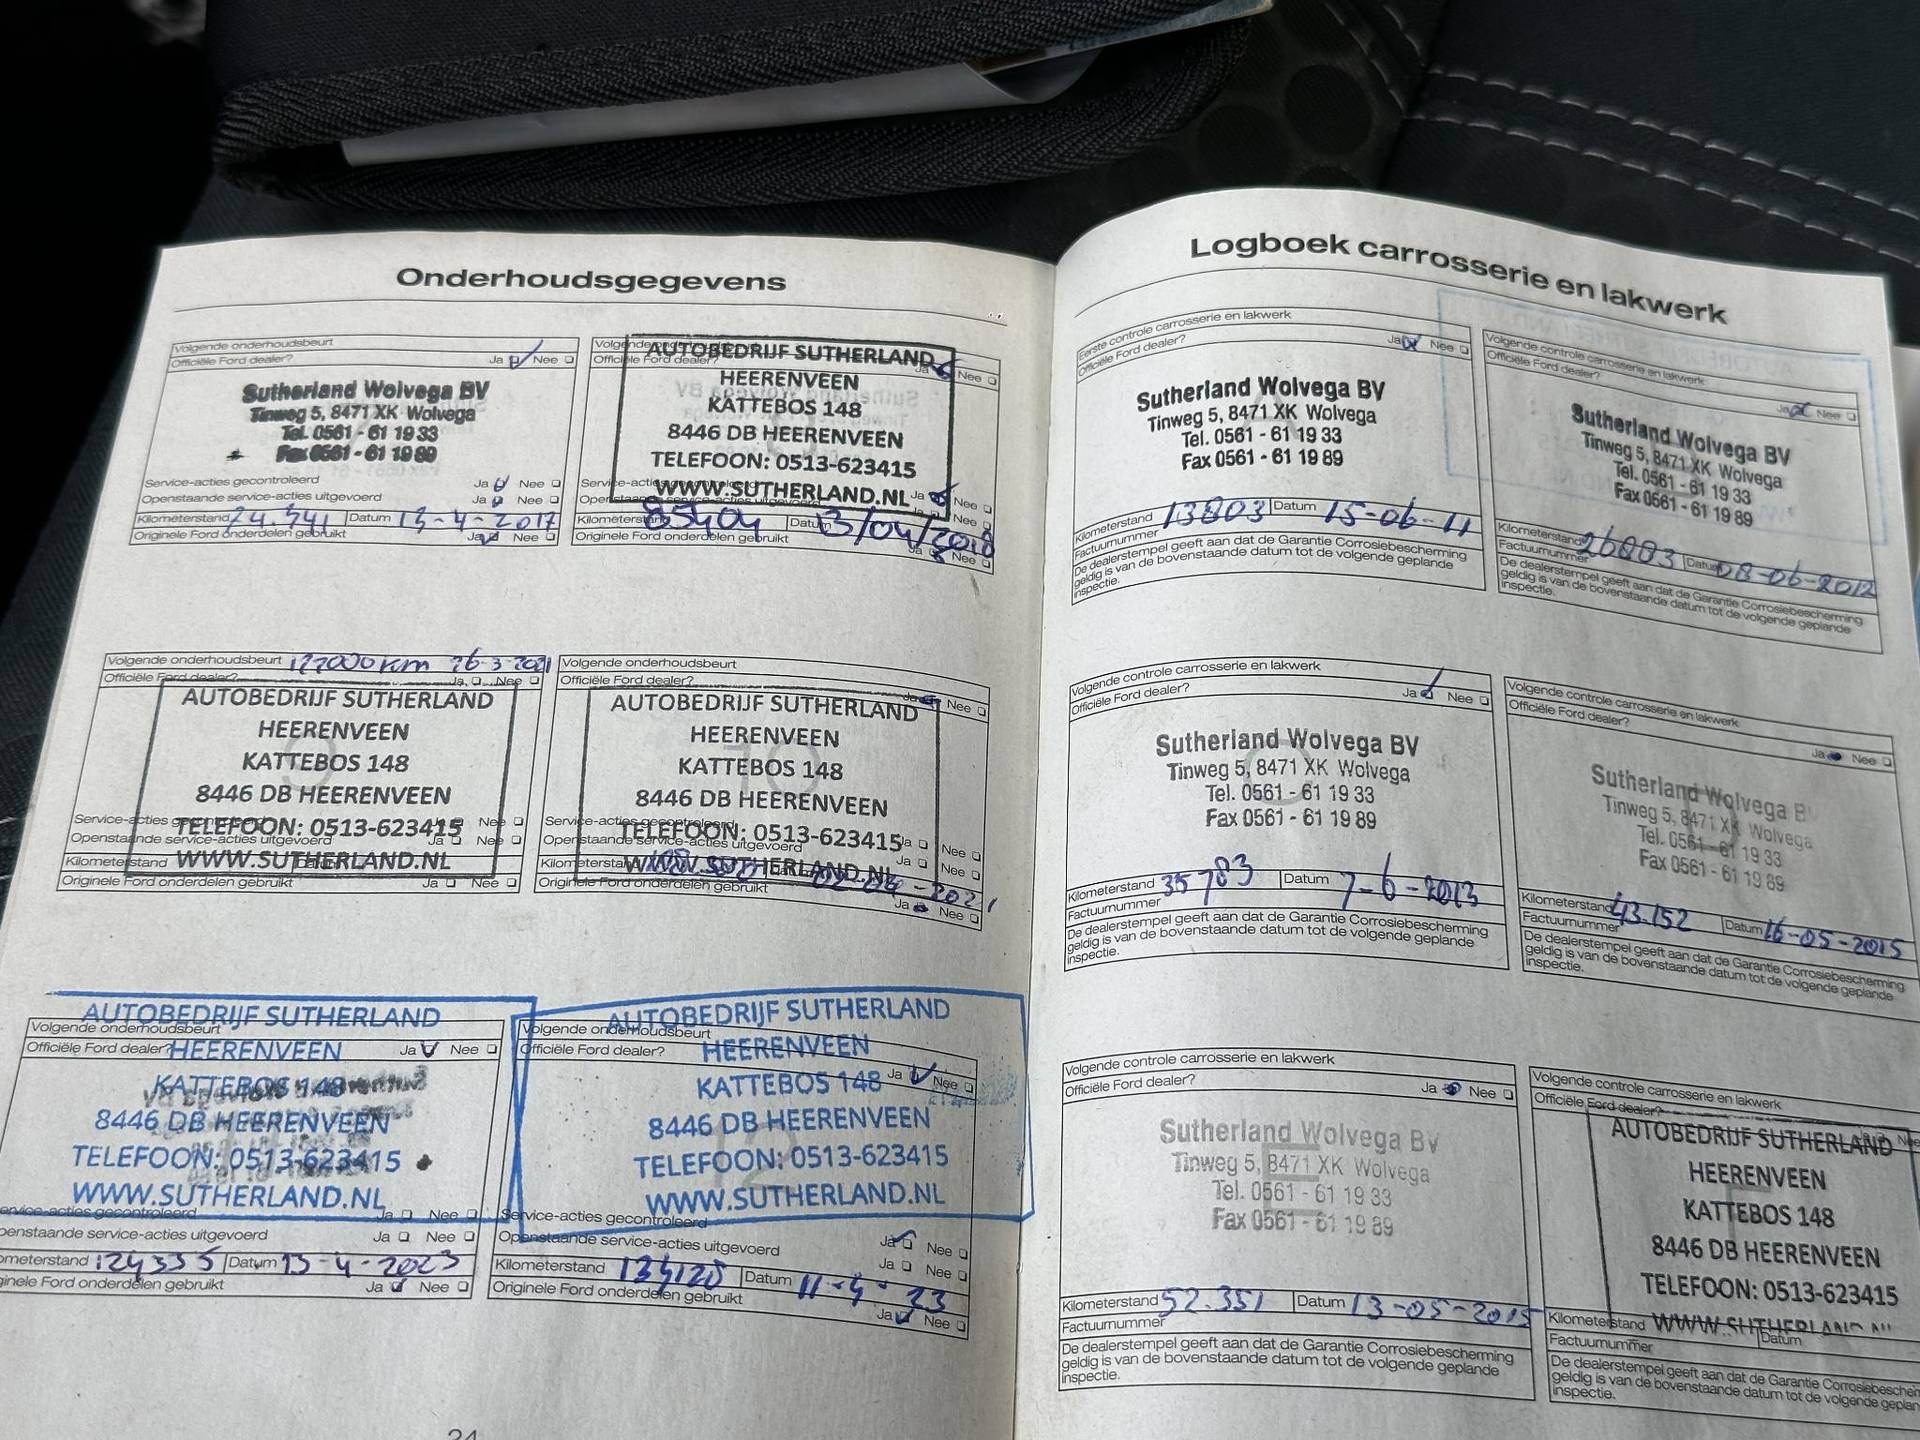 Onderhoudsgegevens
Volgende onderhoudsbeurt
Officiële Ford dealer? Ja Nee
Sutherland Wolvega BV
Tinweg 5, 8471 XK Wolvega
Tel. 0561 - 61 19 33
Fax 0561 - 61 19 89
Service-acties gecontroleerd Ja Nee
Openstaande service-acties uitgevoerd Ja Nee
Kilometerstand 74.341 Datum 13-4-2017
Originele Ford onderdelen gebruikt Ja Nee
Volgende onderhoudsbeurt
Officiële Ford dealer? Ja Nee
AUTOBEDRIJF SUTHERLAND
HEERENVEEN
KATTEBOS 148
8446 DB HEERENVEEN
TELEFOON: 0513-623415
WWW.SUTHERLAND.NL
Ja Nee
Kilometerstand 85404 Datum 13/04/2018
Originele Ford onderdelen gebruikt Ja Nee
Volgende onderhoudsbeurt 26-3-2021
Officiële Ford dealer? Ja Nee
AUTOBEDRIJF SUTHERLAND
HEERENVEEN
KATTEBOS 148
8446 DB HEERENVEEN
TELEFOON: 0513-623415
WWW.SUTHERLAND.NL
Service-acties gecontroleerd Ja Nee
Openstaande service-acties uitgevoerd Ja Nee
Kilometerstand Datum
Originele Ford onderdelen gebruikt Ja Nee
Volgende onderhoudsbeurt
Officiële Ford dealer? Ja Nee
AUTOBEDRIJF SUTHERLAND
HEERENVEEN
KATTEBOS 148
8446 DB HEERENVEEN
TELEFOON: 0513-623415
WWW.SUTHERLAND.NL
Service-acties gecontroleerd Ja Nee
Openstaande service-acties uitgevoerd Ja Nee
Kilometerstand
Originele Ford onderdelen gebruikt Ja Nee
AUTOBEDRIJF SUTHERLAND
Volgende onderhoudsbeurt
Officiële Ford dealer? Ja Nee
HEERENVEEN
KATTEBOS 148
8446 DB HEERENVEEN
TELEFOON: 0513-623415
WWW.SUTHERLAND.NL
ervice-acties gecontroleerd Ja Nee
penstaande service-acties uitgevoerd Ja Nee
ometerstand 124335 Datum 13-4-2023
ginele Ford onderdelen gebruikt Ja Nee
AUTOBEDRIJF SUTHERLAND
Volgende onderhoudsbeurt
Officiële Ford dealer? Ja Nee
HEERENVEEN
KATTEBOS 148
8446 DB HEERENVEEN
12
TELEFOON: 0513-623415
WWW.SUTHERLAND.NL
Service-acties gecontroleerd Ja Nee
Openstaande service-acties uitgevoerd Ja Nee
Kilometerstand Datum
Originele Ford onderdelen gebruikt Ja Nee
24
Logboek carrosserie en lakwerk
Eerste controle carrosserie en lakwerk
Officiële Ford dealer? Ja Nee
Sutherland Wolvega BV
Tinweg 5, 8471 XK Wolvega
Tel. 0561 - 61 19 33
Fax 0561 - 61 19 89
Kilometerstand 13803 Datum 15-06-11
Factuurnummer
De dealerstempel geeft aan dat de Garantie Corrosiebescherming
geldig is van de bovenstaande datum tot de volgende geplande
inspectie.
Volgende controle carrosserie en lakwerk
Officiële Ford dealer? Ja Nee
Sutherland Wolvega BV
Tinweg 5, 8471 XK Wolvega
Tel. 0561 - 61 19 33
Fax 0561 - 61 19 89
Kilometerstand 26803 Datum 08-06-2012
Factuurnummer
De dealerstempel geeft aan dat de Garantie Corrosiebescherming
geldig is van de bovenstaande datum tot de volgende geplande
inspectie.
Volgende controle carrosserie en lakwerk
Officiële Ford dealer? Ja Nee
C
Sutherland Wolvega BV
Tinweg 5, 8471 XK Wolvega
Tel. 0561 - 61 19 33
Fax 0561 - 61 19 89
Kilometerstand 35783 Datum 7-6-2013
Factuurnummer
De dealerstempel geeft aan dat de Garantie Corrosiebescherming
geldig is van de bovenstaande datum tot de volgende geplande
inspectie.
Volgende controle carrosserie en lakwerk
Officiële Ford dealer? Ja Nee
Sutherland Wolvega B
Tinweg 5, 8471 XK Wolvega
Tel. 0561 - 61 19 33
Fax 0561 - 61 19 89
Kilometerstand 43.152 Datum 16-05-2015
Factuurnummer
De dealerstempel geeft aan dat de Garantie Corrosiebescherming
geldig is van de bovenstaande datum tot de volgende geplande
inspectie.
Volgende controle carrosserie en lakwerk
Officiële Ford dealer? Ja Nee
Sutherland Wolvega BV
Tinweg 5, 8471 XK Wolvega
E
Tel. 0561 - 61 19 33
Fax 0561 - 61 19 89
Kilometerstand 52.351 Datum 13-05-2015
Factuurnummer
De dealerstempel geeft aan dat de Garantie Corrosiebescherming
geldig is van de bovenstaande datum tot de volgende geplande
inspectie.
Volgende controle carrosserie en lakwerk
Officiële Ford dealer? Nee
AUTOBEDRIJF SUTHERLAND
HEERENVEEN
KATTEBOS 148
8446 DB HEERENVEEN
TELEFOON: 0513-623415
WWW.SUTHERLAND.NL
Kilometerstand Datum
Factuurnummer
De dealerstempel geeft aan dat de Garantie Corrosiebescher
geldig is van de bovenstaande datum tot de volgende geplan
inspectie.